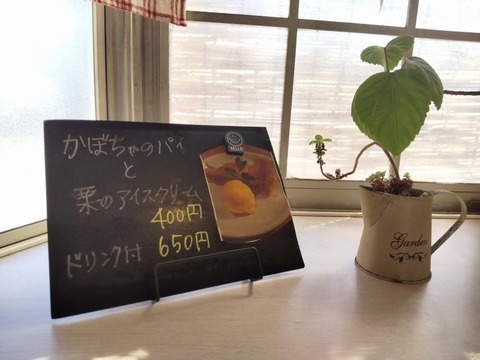 かぼちゃのパイ
と
栗のアイスクリーム
400円
ドリンク付 650円
Garden